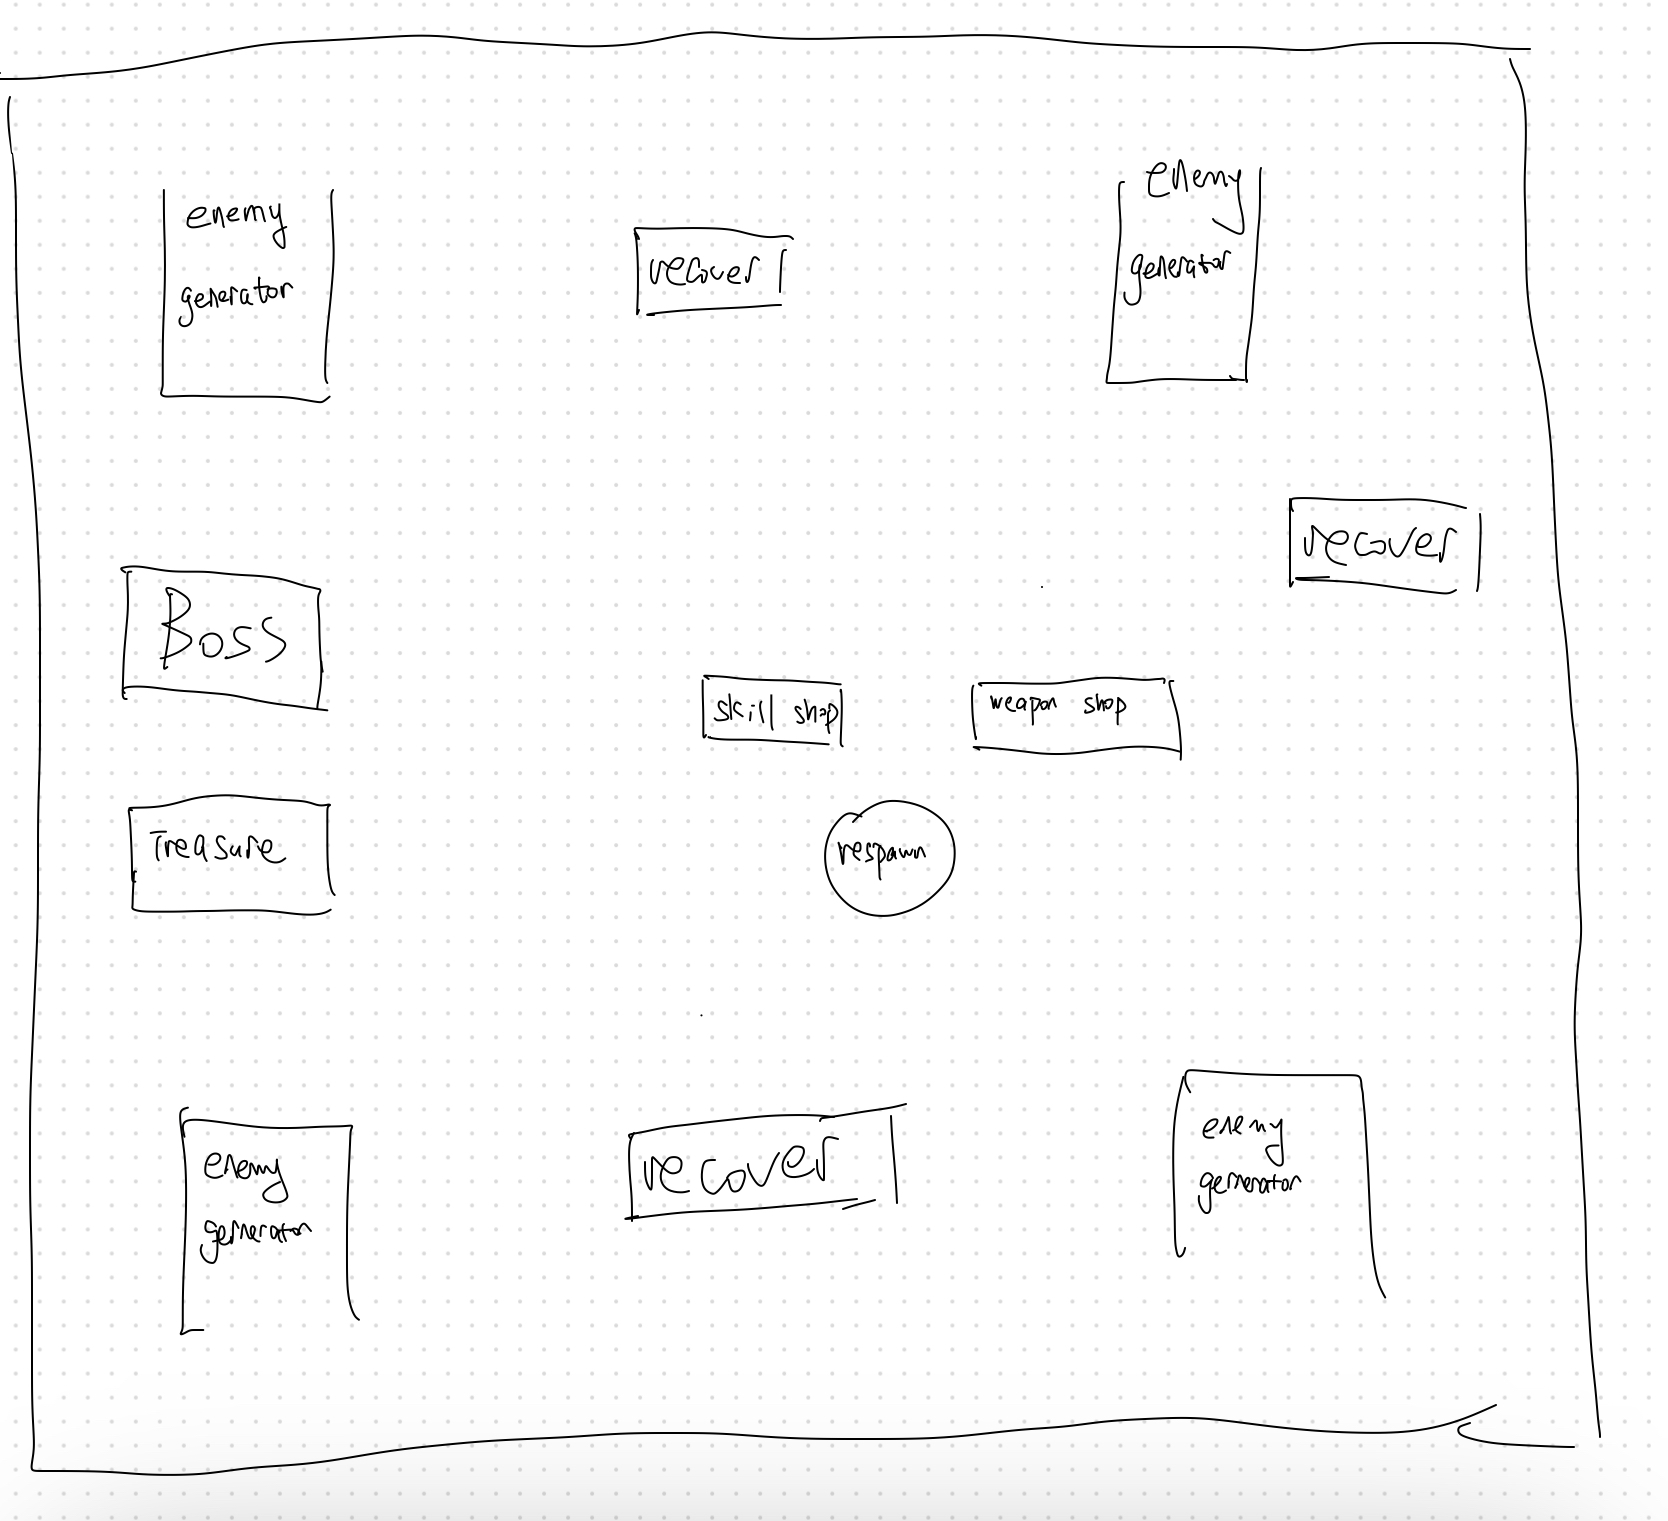 enemy
generator
recover
enemy
generator
recover
Boss
skill shop
weapon shop
Treasure
respawn
enemy
generator
recover
enemy
generator